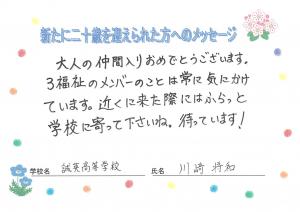 新たに二十歳を迎えられた方へのメッセージ
大人の仲間入りおめでとうございます。
3福祉のメンバーのことは常に気にかけ
ています。近くに来た際にはふらっと
学校に寄って下さいね。待っています!
学校名 誠英高等学校 氏名 川﨑 将和